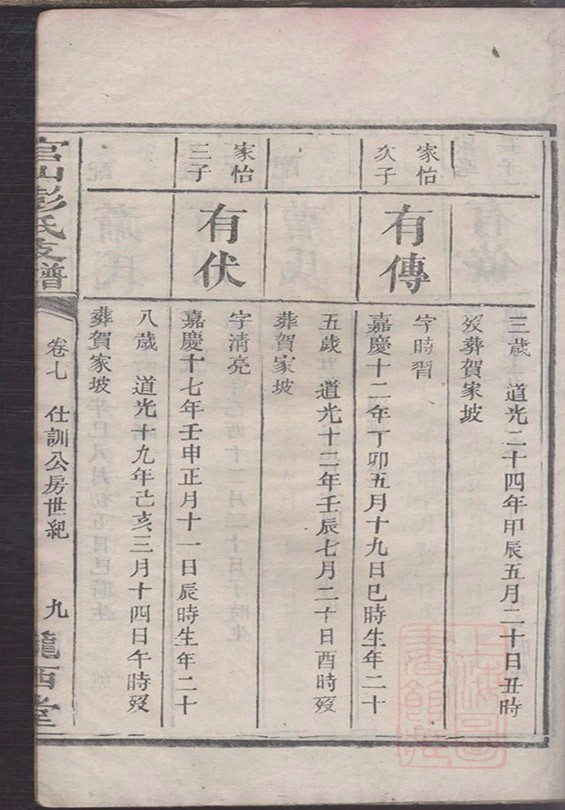 三歲 道光二十四年甲辰五月二十日丑時
歿葬賀家坡
家怡
次子
有傳
字時習
嘉慶十二年丁卯五月十九日巳時生年二十
五歲 道光十二年壬辰七月二十日酉時歿
葬賀家坡
家怡
三子
有伏
字清亮
嘉慶十七年壬申正月十一日辰時生年二十
八歲 道光十九年己亥三月十四日午時歿
葬賀家坡
官山彭氏支譜
卷七 仕訓公房世紀
九
隴西堂
上海圖書館藏